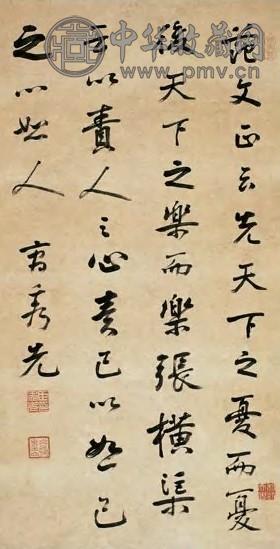 中华收藏网
www.pmv.cn
范文正云先天下之憂而憂
後天下之樂而樂張橫渠
云以責人之心責己以恕己
之心恕人
曹秀先